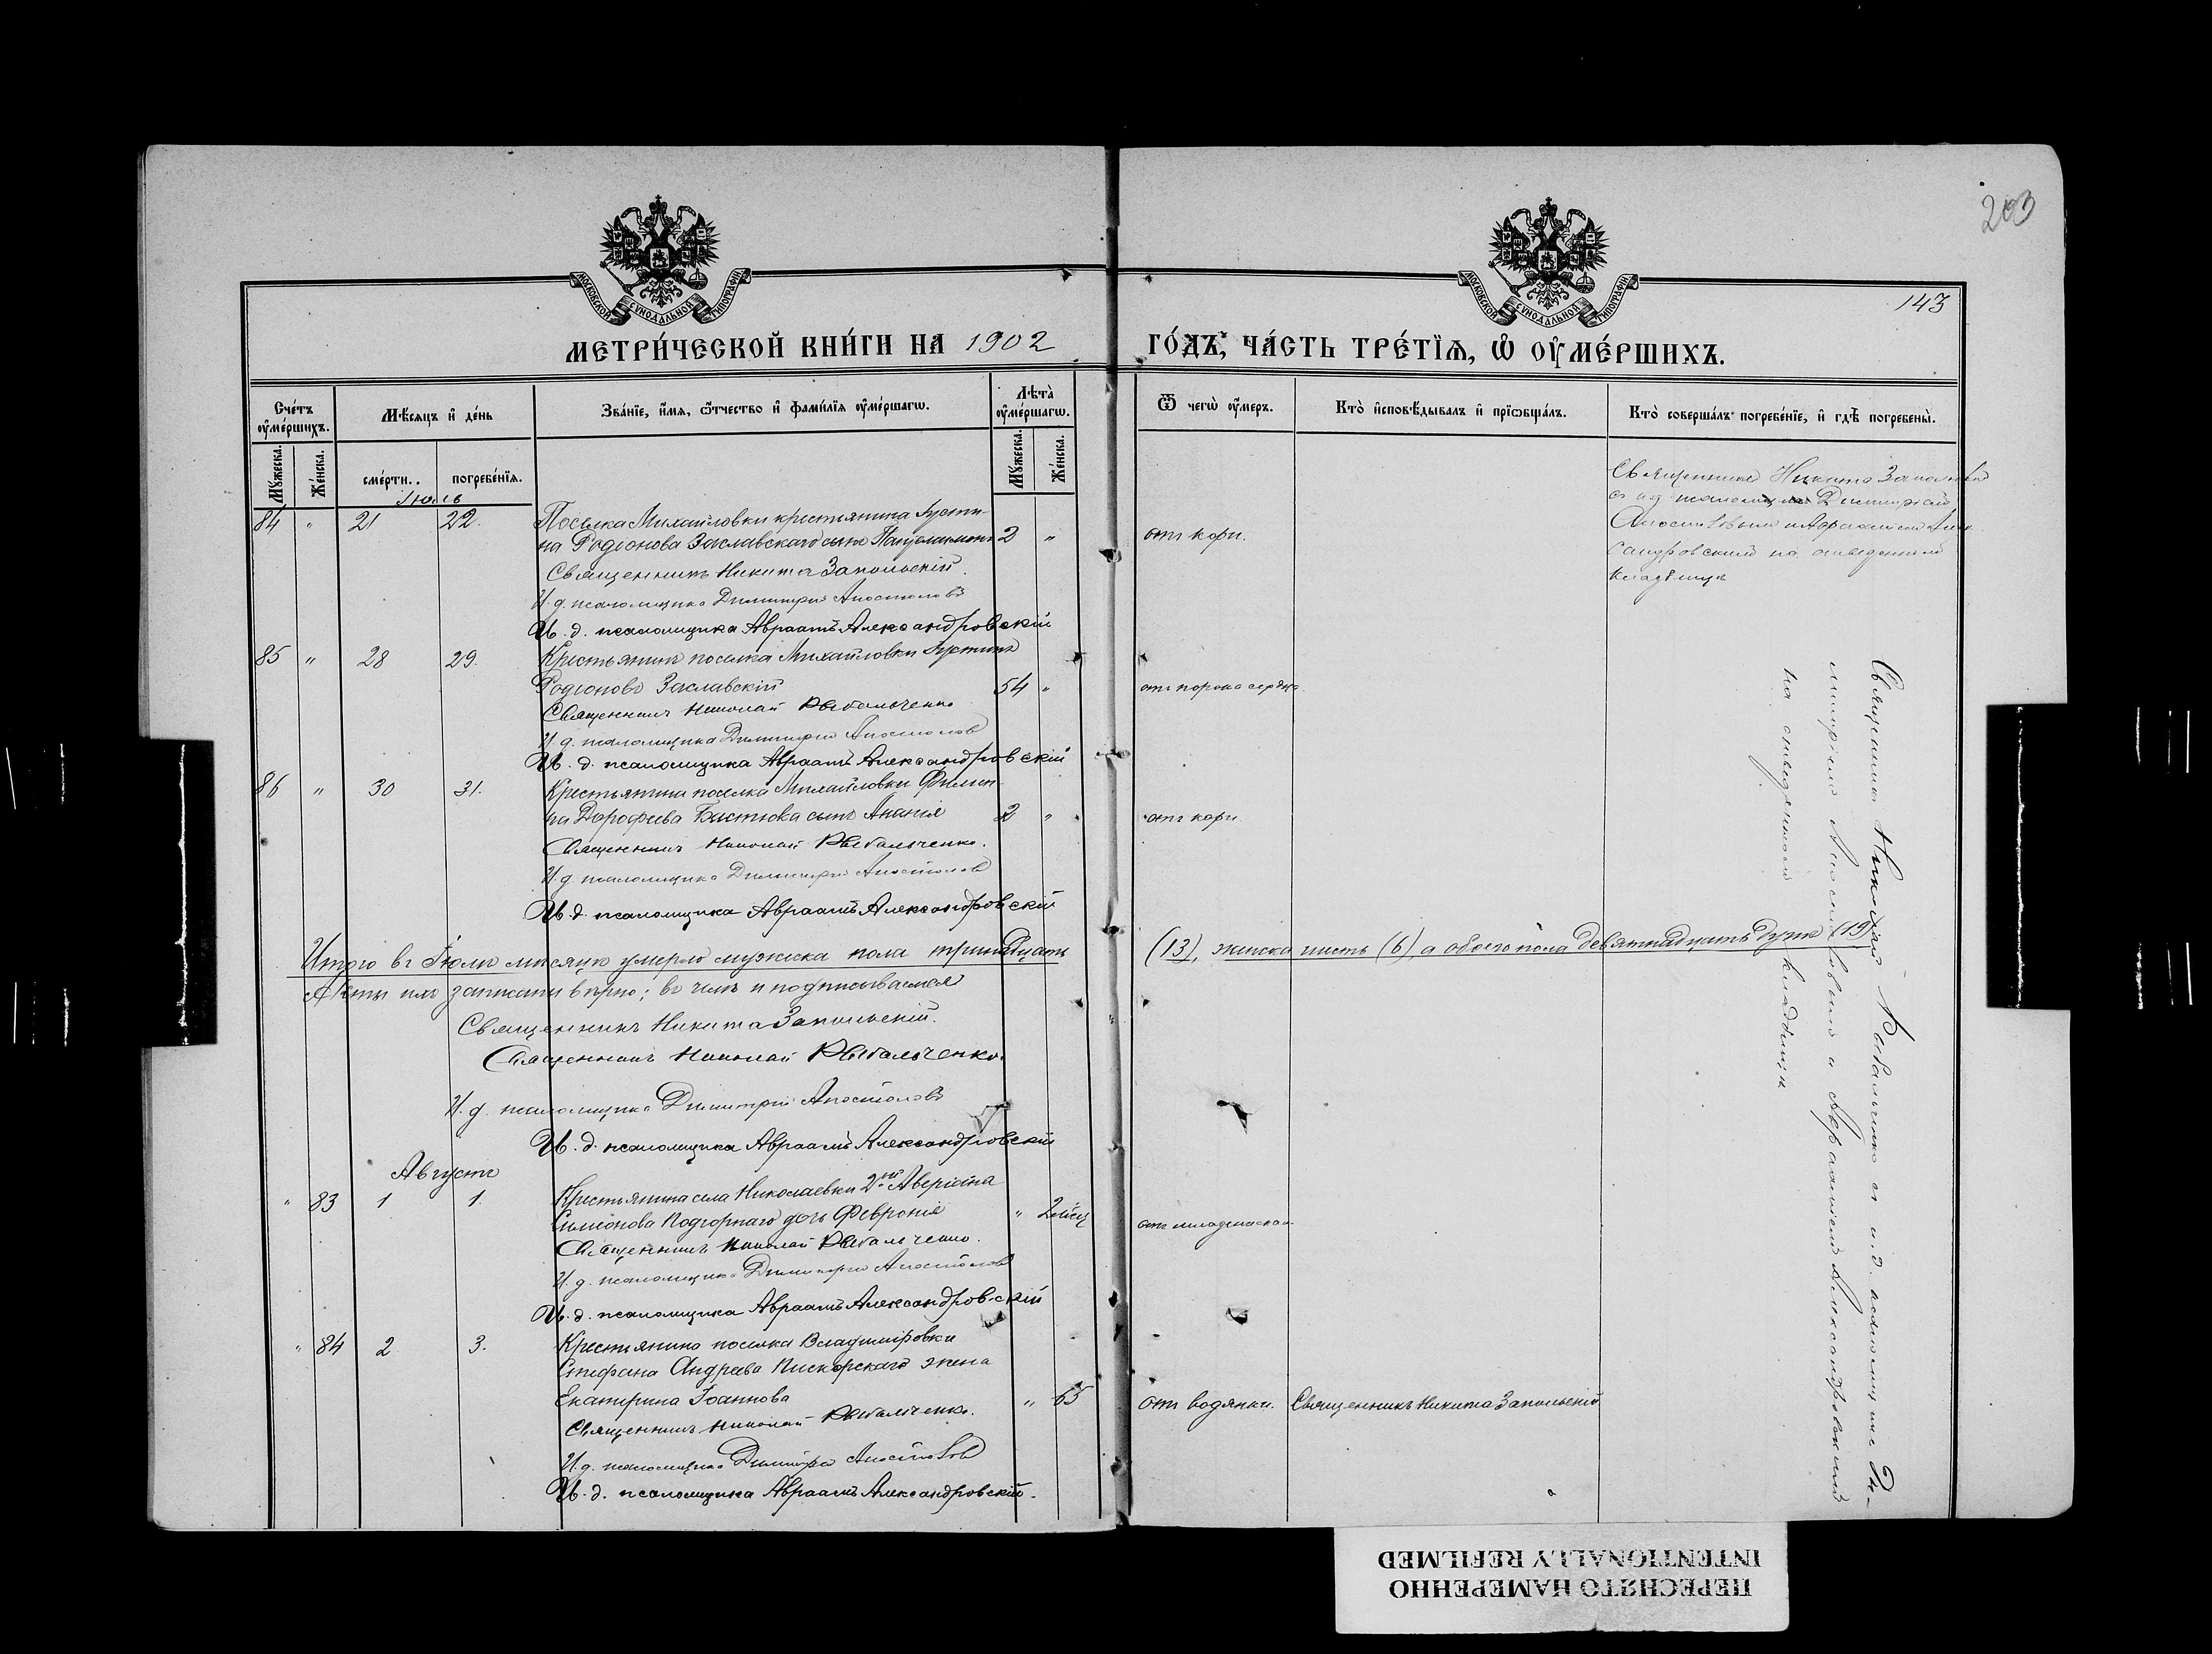 203
143
МОСКОВСКОЙ СУНОДАЛЬНОЙ ТИПОГРАФІИ
МОСКОВСКОЙ СУНОДАЛЬНОЙ ТИПОГРАФІИ
МЕТРИ́ЧЕСКОЙ КНИ́ГИ НА 1902 ГО́ДЪ, ЧА́СТЬ ТРЕ́ТІѦ, Ѡ҆ ОУ҆МЕ́РШИХЪ.
Сче́тъ оу҆ме́ршихъ.
Мꙋ́жеска.
Же́нска.
Мѣ́сѧцъ и҆ де́нь
сме́рти.
погребе́нїѧ.
Зва́нїе, и҆́мѧ, ѻ҆́тчество и҆ фами́лїѧ оу҆ме́ршагѡ.
Лѣ́та̀ оу҆ме́ршагѡ.
Мꙋ́жеска.
Же́нска.
Ѿ чегѡ̀ оу҆́меръ.
Кто̀ и҆сповѣ́дывалъ и҆ прїѡбща́лъ.
Кто̀ соверша́лъ погребе́нїе, и҆ гдѣ̀ погребены̀.
Іюль
84 " 21 22. Поселка Михайловки крестьянина Іусти-
на Родіонова Заславскаго сынъ Пантелеимонъ 2 " отъ кори.
Священникъ Никита Запольскій.
И. д. псаломщика Димитрій Апостоловъ
И. д. псаломщика Авраамъ Александровскій
Священникъ Никита Запольскій
съ и.д. псаломщика Димитріемъ
Апостоловымъ и Аврааміемъ Алек
сандровскимъ на отведенномъ
кладбищѣ
85 " 28 29. Крестьянинъ поселка Михайловки Іустинъ
Родіоновъ Заславскій 54 " отъ порока сердца.
Священникъ Николай Рыбальченко
И. д. псаломщика Димитрій Апостоловъ
И. д. псаломщика Авраамъ Александровскій
86 " 30 31. Крестьянина поселка Михайловки Филип-
па Дорофеева сынъ Ананія 2 " отъ кори
Священникъ Николай Рыбальченко.
И. д. псаломщика Димитрій Апостоловъ
И. д. псаломщика Авраамъ Александровскій
Итого въ Іюлѣ мѣсяцѣ умерло мужеска пола тринадцать (13), женска шесть (6), а обоего пола девятнадцать душъ (19)
Акты им записаны вѣрно; въ чемъ и подписываемся
Священникъ Никита Запольскій.
Священникъ Николай Рыбальченко.
И. д. псаломщика Димитрій Апостоловъ
И. д. псаломщика Авраамъ Александровскій
Августъ
" 83 1 1. Крестьянина села Николаевки 2-ой
Симеонова Подгорнаго дочь Февронія " 2 мѣсяц отъ младенческой
Священникъ Николай Рыбальченко.
И. д. псаломщика Димитрій Апостоловъ
И. д. псаломщика Авраамъ Александровскій
" 84 2 3. Крестьянина поселка Владиміровки
Стефана Андреева Пискорскаго жена
Екатерина Іоаннова " 65 отъ водянки. Священникъ Никита Запольскій
Священникъ Николай Рыбальченко.
И. д. псаломщика Димитрій Апостоловъ
И. д. псаломщика Авраамъ Александровскій.
Священникъ Николай Рыбальченко съ и. д. псаломщика Ди-
митріемъ Апостоловымъ и Аврааміемъ Александровскимъ
на отведенномъ кладбищѣ
ПЕРЕСНЯТО НАМЕРЕННО
INTENTIONALLY REFILMED